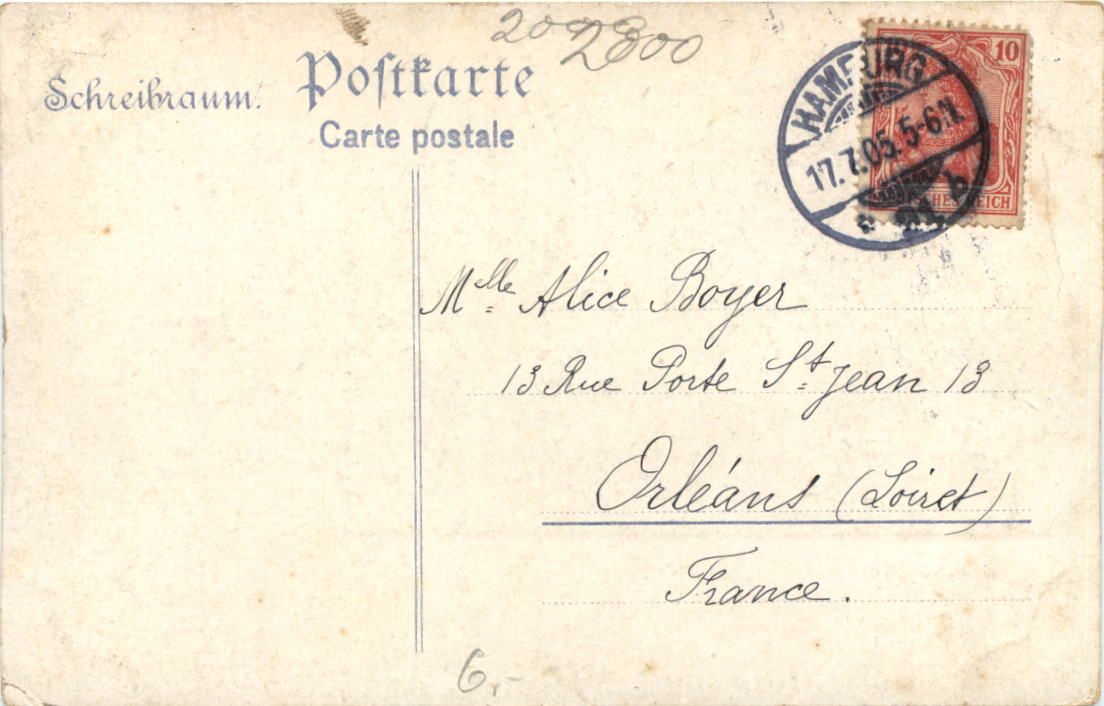 Schreibraum.
Postkarte
Carte postale
2800
10
HAMBURG
17.7.05. 5-6 N.
Mlle Alice Boyer
13 Rue Porte St Jean 13
Orléans (Loiret)
France.
6,-